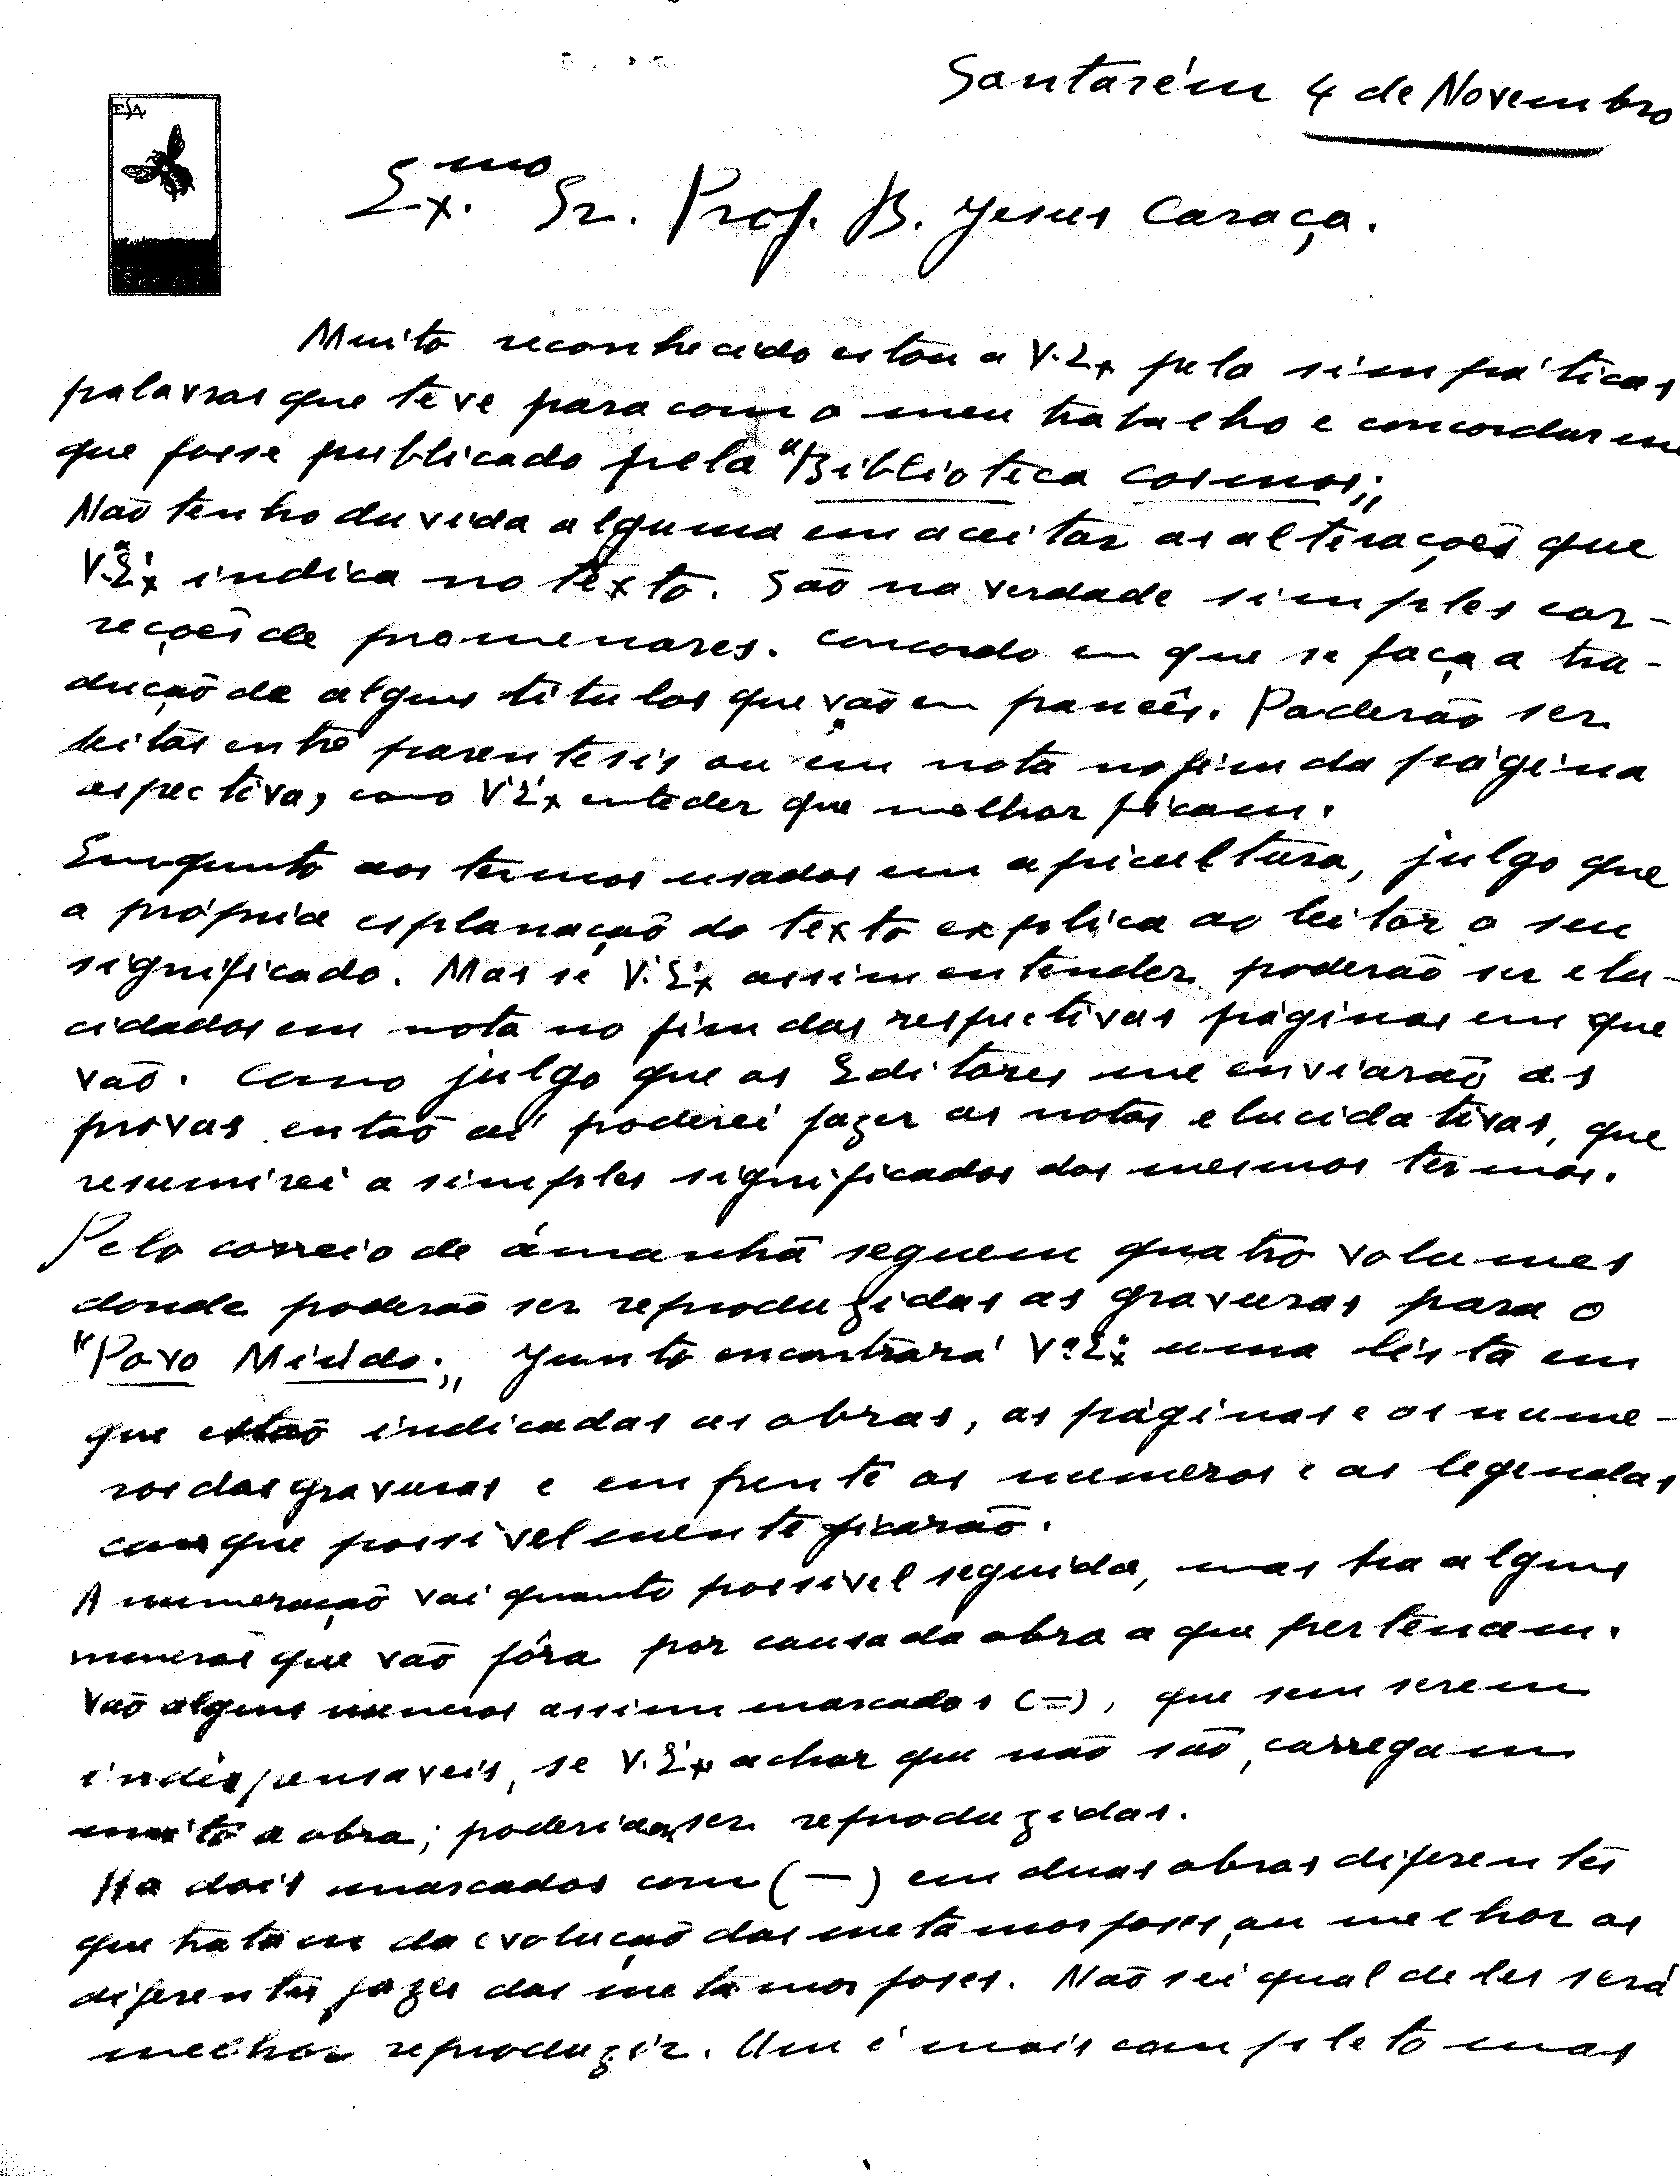 Santarém 4 de Novembro
ESA
Ex.mo Sr. Prof. B. Jesus Caraça.
Muito reconhecido estou a V. Ex pela simpáticas
palavras que teve para com o meu trabalho e concordar em
que fosse publicado pela "Biblioteca Cosmos;"
Não tenho duvida alguma em aceitar as alterações que
V. Ex.ª indica no texto. São na verdade simples cor-
reções de promenores. Concordo em que se faça a tra-
dução de alguns titulos que vão em francês. Poderão ser
feitas entre parentesis ou em nota no fim da página
respectiva, como V Ex enteder que melhor ficam.
Emquanto aos termos usados em apicultura, julgo que
a própria esplanação do texto explica ao leitor o seu
significado. Mas se V. Ex assim entender poderão ser elu-
cidados em nota no fim das respectivas páginas em que
vão. Como julgo que os Editores me enviarão as
provas então aí poderei fazer as notas elucidativas, que
resumirei a simples significados dos mesmos termos.
Pelo correio de ámanhã seguem quatro volumes
donde poderão ser reproduzidas as gravuras para o
"Povo Miúdo;" Junto encontrará V.ª Ex uma lista em
que estão indicadas as obras, as páginas e os nume-
ros das gravuras e em frente os numeros e as legendas
com que possivelmente ficarão.
A numeração vai quanto possivel seguida, mas ha alguns
numeros que vão fóra por causa da obra a que pertencem.
Vão alguns numeros assim marcados (=), que sem serem
indispensaveis, se V. Ex achar que não são, carregam
muito a obra; poderião ser reproduzidas.
Ha dois marcados com (—) em duas obras diferentes
que tratam da evolução das metamorfoses, ou melhor as
diferentes fazes das metamorfoses. Não sei qual deles será
melhor reproduzir. Um é mais completo mas